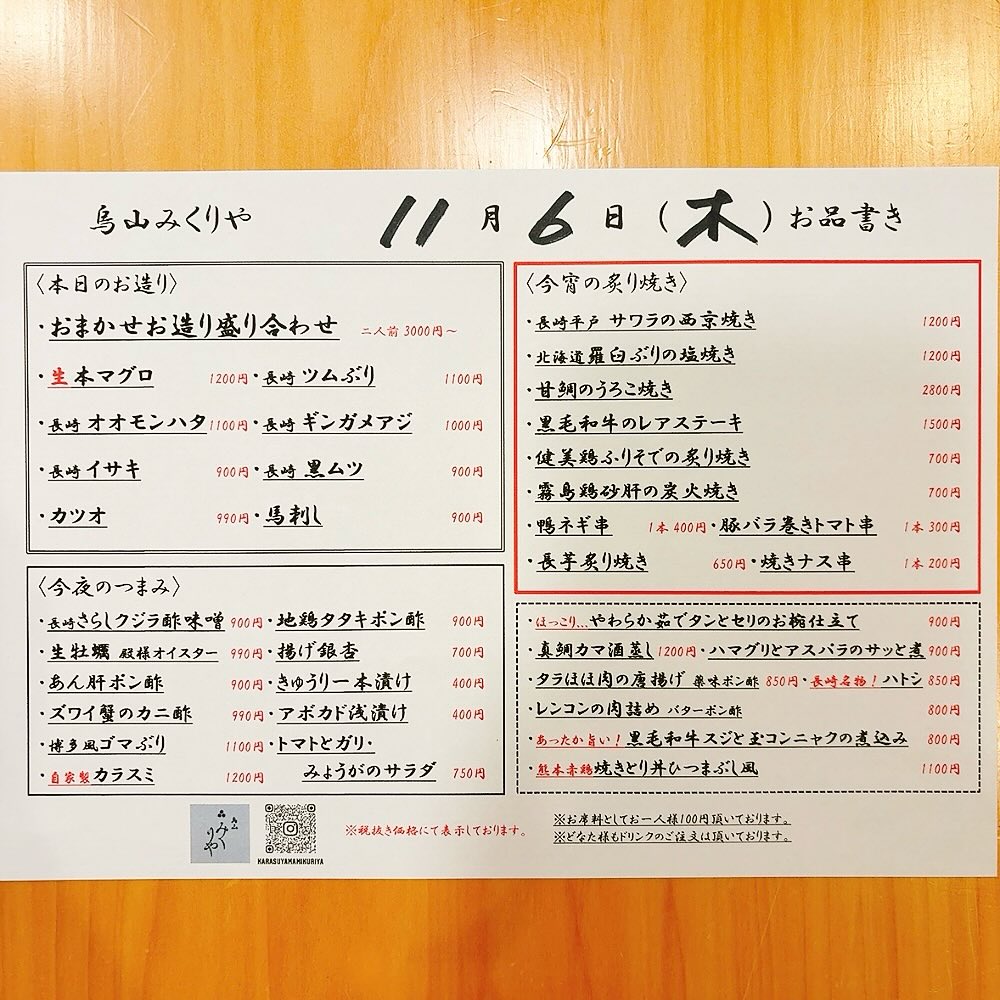 烏山みくりや 11月6日(木)お品書き
〈本日のお造り〉
・おまかせお造り盛り合わせ 二人前 3000円〜
・生本マグロ 1200円・長崎 ツムぶり 1100円
・長崎 オオモンハタ 1100円・長崎 ギンガメアジ 1000円
・長崎 イサキ 900円・長崎 黒ムツ 900円
・カツオ 990円・馬刺し 900円
〈今夜のつまみ〉
・長崎さらしクジラ酢味噌 900円・地鶏タタキポン酢 900円
・生牡蠣 殿様オイスター 990円・揚げ銀杏 700円
・あん肝ポン酢 900円・きゅうり一本漬け 400円
・ズワイ蟹のカニ酢 990円・アボカド浅漬け 400円
・博多風ゴマぶり 1100円・トマトとガリ・
・自家製カラスミ 1200円 みょうがのサラダ 750円
〈今宵の炙り焼き〉
・長崎平戸 サワラの西京焼き 1200円
・北海道羅臼ぶりの塩焼き 1200円
・甘鯛のうろこ焼き 2800円
・黒毛和牛のレアステーキ 1500円
・健美鶏ふりそでの炙り焼き 700円
・霧島鶏砂肝の炭火焼き 700円
・鴨ネギ串 1本 400円・豚バラ巻きトマト串 1本 300円
・長芋炙り焼き 650円・焼きナス串 1本 200円
・ほっこり…やわらか茹でタンとセリのお椀仕立て 900円
・真鯛カマ酒蒸し 1200円・ハマグリとアスパラのサッと煮 900円
・タラほほ肉の唐揚げ 薬味ポン酢 850円・長崎名物!ハトシ 850円
・レンコンの肉詰め バターポン酢 800円
・あったか旨い!黒毛和牛スジと玉コンニャクの煮込み 800円
・熊本赤鶏焼きとり丼ひつまぶし風 1100円
烏山
みくりや
KARASUYAMAMIKURIYA
※税抜き価格にて表示しております。
※お席料としてお一人様100円頂いております。
※どなた様もドリンクのご注文は頂いております。